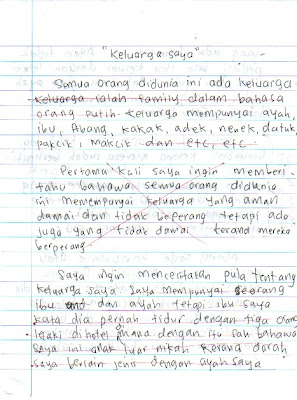 "Keluarga saya"
Semua orang didunia ini ada keluarga
keluarga ialah family dalam bahasa
orang putih. keluarga mempunyai ayah,
ibu, Abang, kakak, adek, nenek, datuk,
pakcik, makcik dan etc, etc
Pertama kali saya ingin memberi
tahu bahawa semua orang didunia
ini memempunyai keluarga yang aman
damai dan tidak beperang tetapi ada
juga yang tidak damai kerana mereka
berperang
Saya ingin menceritakan pula tentang
keluarga saya. Saya mempunyai seorang
ibu dan ayah tetapi ibu saya
kata dia pernah tidur dengan tiga orang
lelaki dihotel mana dengan itu lah bahawa
saya ini anak luar nikah kerana darah
saya berlain jenis dengan ayah saya